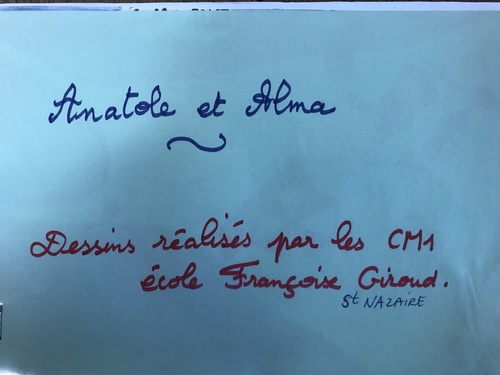 Anatole et Alma
Dessins réalisés par les CM1
école Françoise Giroud.
St NAZAIRE